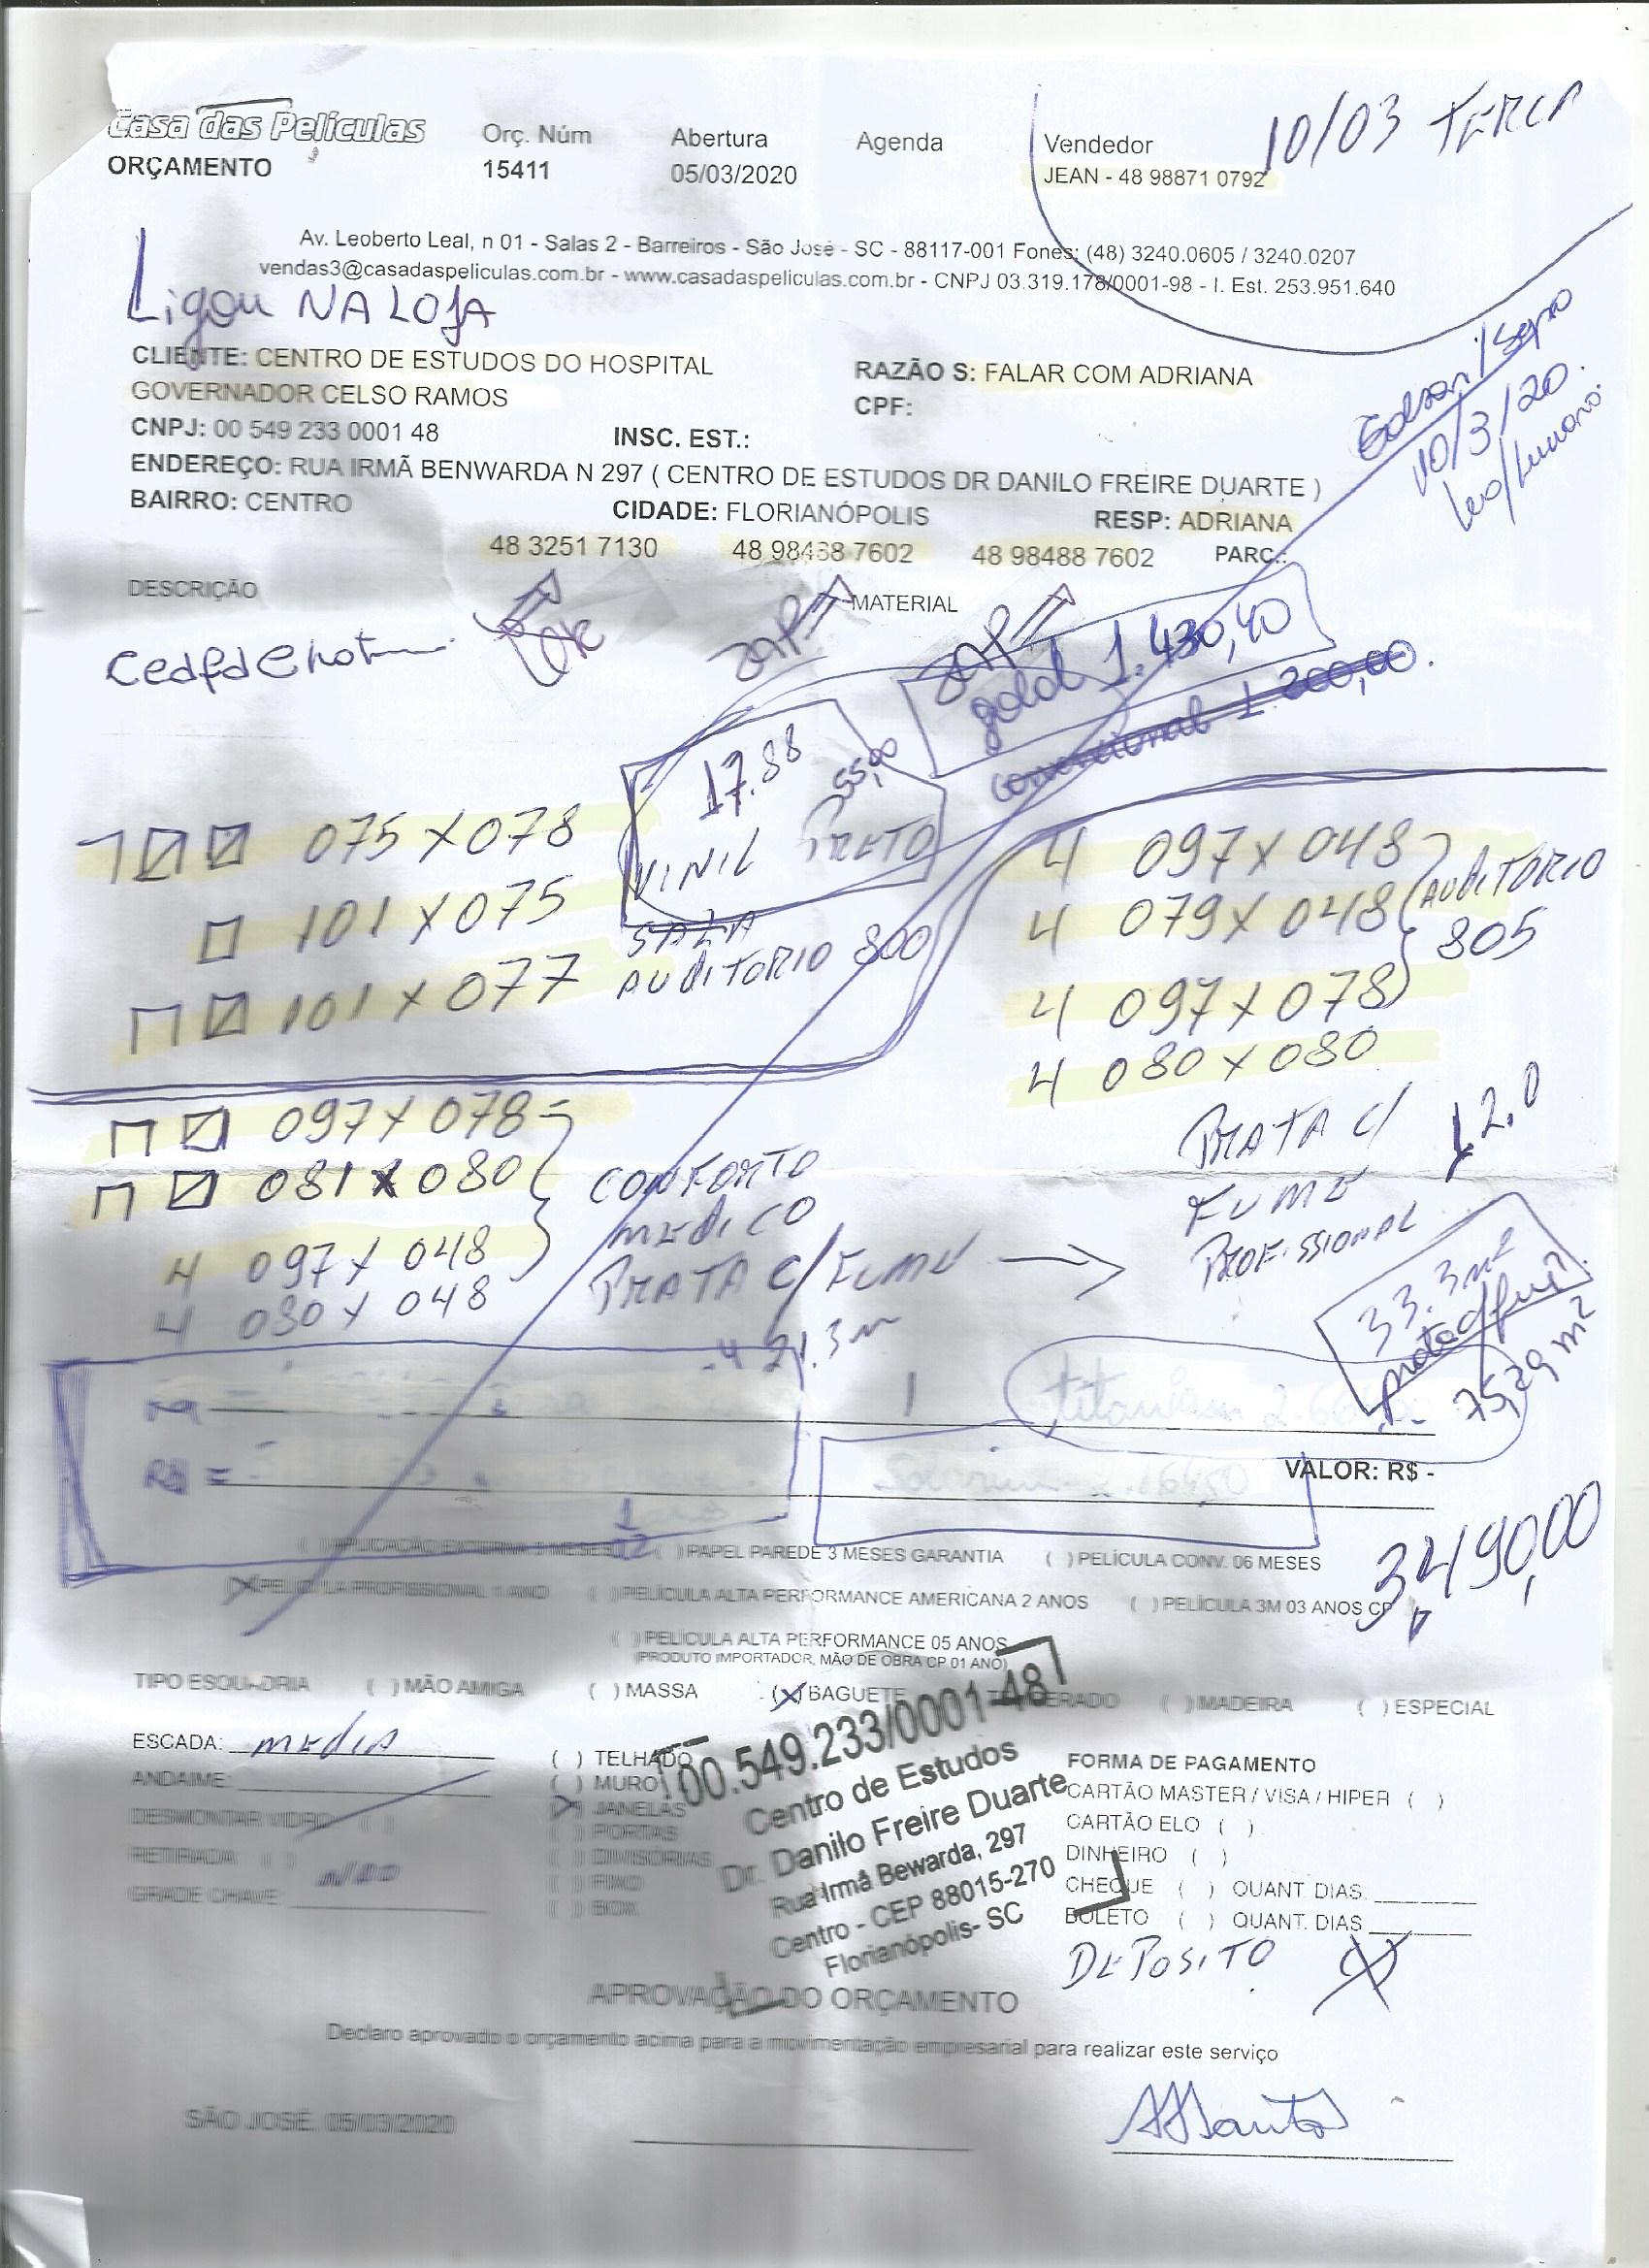 Casa das Películas
ORÇAMENTO
Orç. Núm
15411
Abertura
05/03/2020
Agenda
Vendedor
JEAN - 48 98871 0792
10/03 TERÇA
Av. Leoberto Leal, n 01 - Salas 2 - Barreiros - São José - SC - 88117-001 Fones: (48) 3240.0605 / 3240.0207
vendas3@casadaspeliculas.com.br - www.casadaspeliculas.com.br - CNPJ 03.319.178/0001-98 - I. Est. 253.951.640
Ligou NA LOJA
CLIENTE: CENTRO DE ESTUDOS DO HOSPITAL
GOVERNADOR CELSO RAMOS
RAZÃO S: FALAR COM ADRIANA
CPF:
10/3/20.
CNPJ: 00 549 233 0001 48
INSC. EST.:
ENDEREÇO: RUA IRMÃ BENWARDA N 297 ( CENTRO DE ESTUDOS DR DANILO FREIRE DUARTE )
BAIRRO: CENTRO
CIDADE: FLORIANÓPOLIS
RESP: ADRIANA
48 3251 7130
48 98488 7602
48 98488 7602
PARC.:
DESCRIÇÃO
MATERIAL
ZAP
ZAP
gold 1.430,40
convencional 1.200,00.
17.88
55,00
VINIL PRETO
075 X 078
101 X 075
101 X 077
SALA
AUDITORIO 800
4 097 X 048
4 079 X 048
4 097 X 078
4 080 X 080
AUDITORIO
805
097 X 078
081 X 080
4 097 X 048
4 080 X 048
CONFORTO
MEDICO
PRATA C/ FUME
21.3m
PRATA C/
FUME
PROFISSIONAL
12.0
33.3m²
75,29 m²
titanium
R$ =
VALOR: R$ -
3,490,00
( ) APLICAÇÃO EXTERNA 3 MESES
( ) PAPEL PAREDE 3 MESES GARANTIA
( ) PELÍCULA CONV. 06 MESES
(X) PELÍCULA PROFISSIONAL 1 ANO
( ) PELÍCULA ALTA PERFORMANCE AMERICANA 2 ANOS
( ) PELÍCULA 3M 03 ANOS CP
( ) PELÍCULA ALTA PERFORMANCE 05 ANOS
(PRODUTO IMPORTADOR, MÃO DE OBRA CP 01 ANO)
TIPO ESQUADRIA
( ) MÃO AMIGA
( ) MASSA
(X) BAGUETE
( ) MADEIRA
( ) ESPECIAL
ESCADA: MEDIA
ANDAIME:
DESMONTAR VIDRO ( )
RETIRADA ( )
NÃO
GRADE CHAVE:
( ) TELHADO
( ) MURO
(X) JANELAS
( ) PORTAS
( ) DIVISÓRIAS
( ) FIXO
( ) BOX
00.549.233/0001-48
Centro de Estudos
Dr. Danilo Freire Duarte
Rua Irmã Bewarda, 297
Centro - CEP 88015-270
Florianópolis- SC
FORMA DE PAGAMENTO
CARTÃO MASTER / VISA / HIPER ( )
CARTÃO ELO ( )
DINHEIRO ( )
CHEQUE ( ) QUANT. DIAS
BOLETO ( ) QUANT. DIAS
DEPOSITO (X)
APROVAÇÃO DO ORÇAMENTO
Declaro aprovado o orçamento acima para a movimentação empresarial para realizar este serviço
SÃO JOSÉ, 05/03/2020